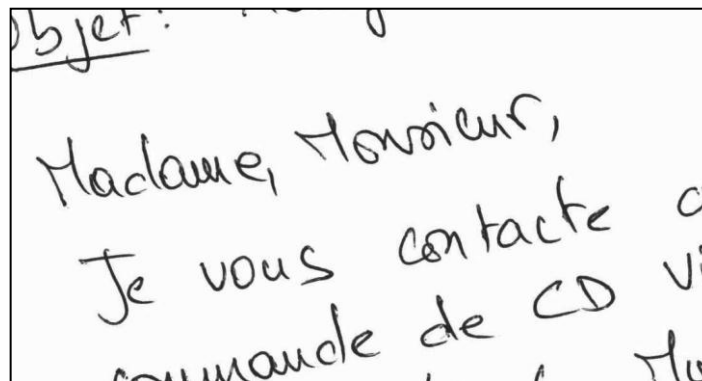 Objet:
Madame, Monsieur,
Je vous contacte
commande de CD